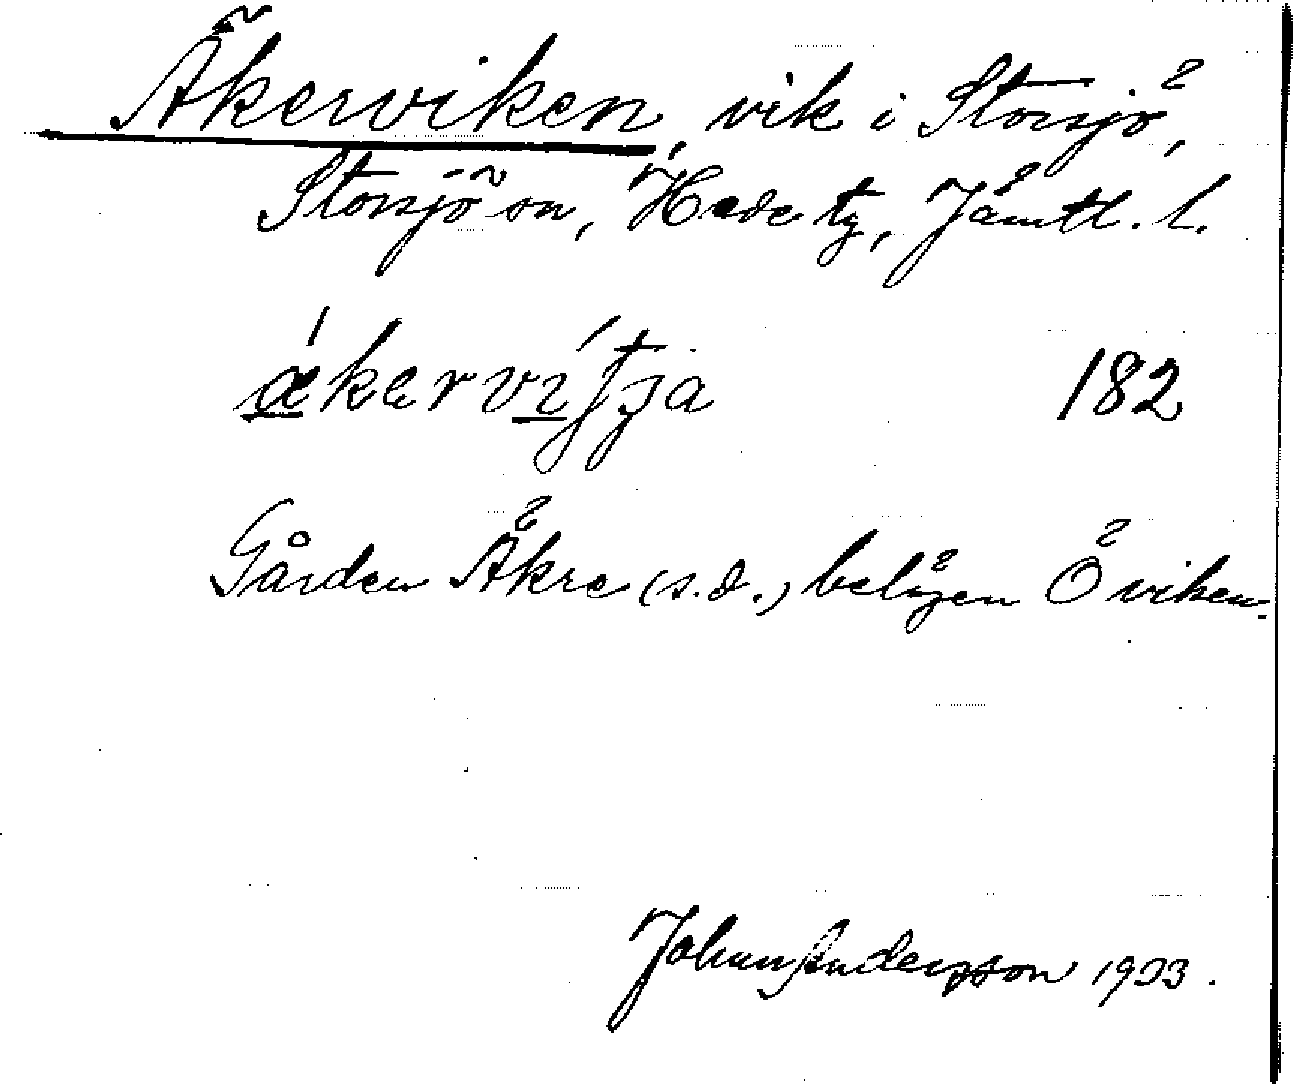 Åkerviken, vik i Storsjö,
Storsjö sn, Hede tg, Jämtl. l.
ǽkerví̱ʃtja 182
Gården Åkre (s.d.) belägen Ö viken.
Johan Andersson 1933.